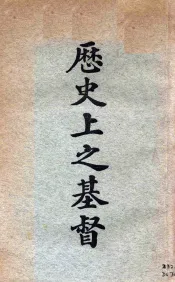 歷史上之基督